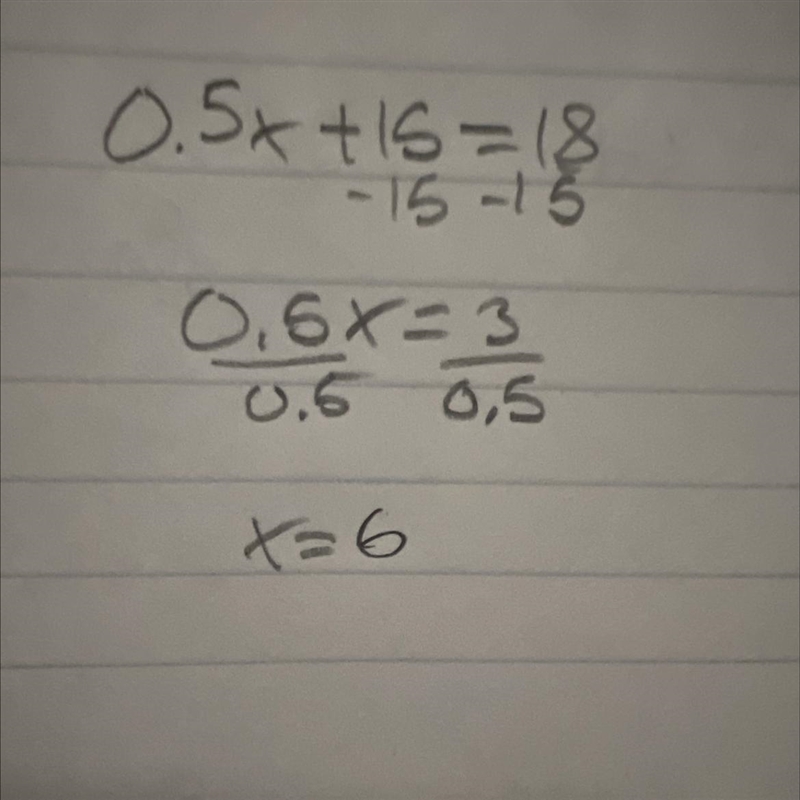 0.5x + 15 = 18
-15 -15
0.5x = 3
0.5 0.5
x = 6